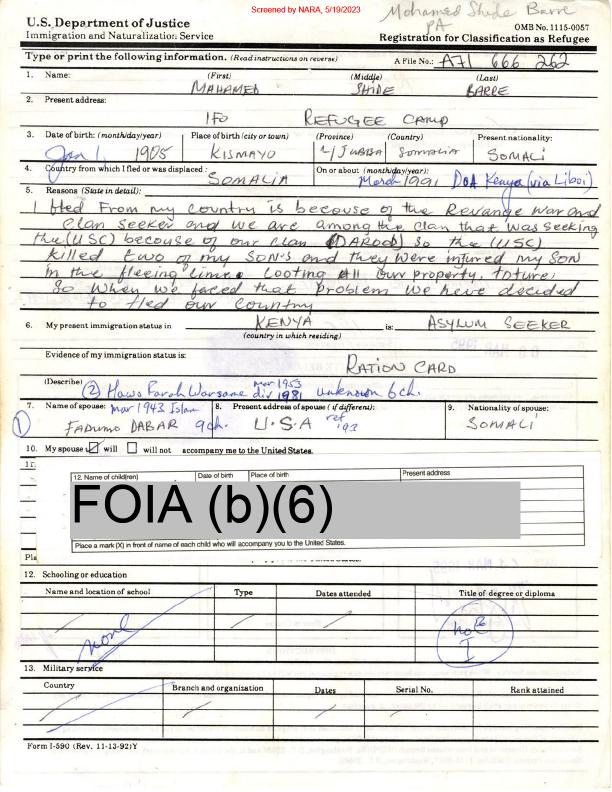 Screened by NARA, 5/19/2023
Mohamed Shide Barre
PA
U.S. Department of Justice
Immigration and Naturalization Service
OMB No. 1115-0057
Registration for Classification as Refugee
Type or print the following information. (Read instructions on reverse)
A File No.: A71 666 262
1. Name: (First) (Middle) (Last)
MAHAMED SHIDE BARRE
2. Present address:
IFO REFUGEE CAMP
3. Date of birth: (month/day/year) Place of birth (city or town) (Province) (Country) Present nationality:
Jan 1, 1905 KISMAYO L/JUBBA Somalia SOMALI
4. Country from which I fled or was displaced: On or about (month/day/year):
SOMALIA March 1991 DOA Kenya (via Liboi)
5. Reasons (State in detail):
I fled From my country is becouse of the Revange war and
clan seeker and we are among the clan that was seeking
the (USC) becouse of our clan (DAROOD) so the (USC)
killed two of my SON'S and they were injured my SON
in the fleeing time. Looting All our property, toture,
So when we faced that problem we have decided
to fled our country
6. My present immigration status in KENYA is: ASYLUM SEEKER
(country in which residing)
Evidence of my immigration status is:
RATION CARD
(Describe) (2) Hawo Farah Warsame mar 1953 div 1981 unknown 6 ch.
7. Name of spouse: mar 1943 Islam 8. Present address of spouse (if different): 9. Nationality of spouse:
(1) FADUMO DABAR 9ch. U.S.A ref '93 SOMALI
10. My spouse will will not accompany me to the United States.
11.
12. Name of child(ren) Date of birth Place of birth Present address
FOIA (b)(6)
Place a mark (X) in front of name of each child who will accompany you to the United States.
Pla
12. Schooling or education
Name and location of school Type Dates attended Title of degree or diploma
none
No E
I
13. Military service
Country Branch and organization Dates Serial No. Rank attained
Form I-590 (Rev. 11-13-92)Y